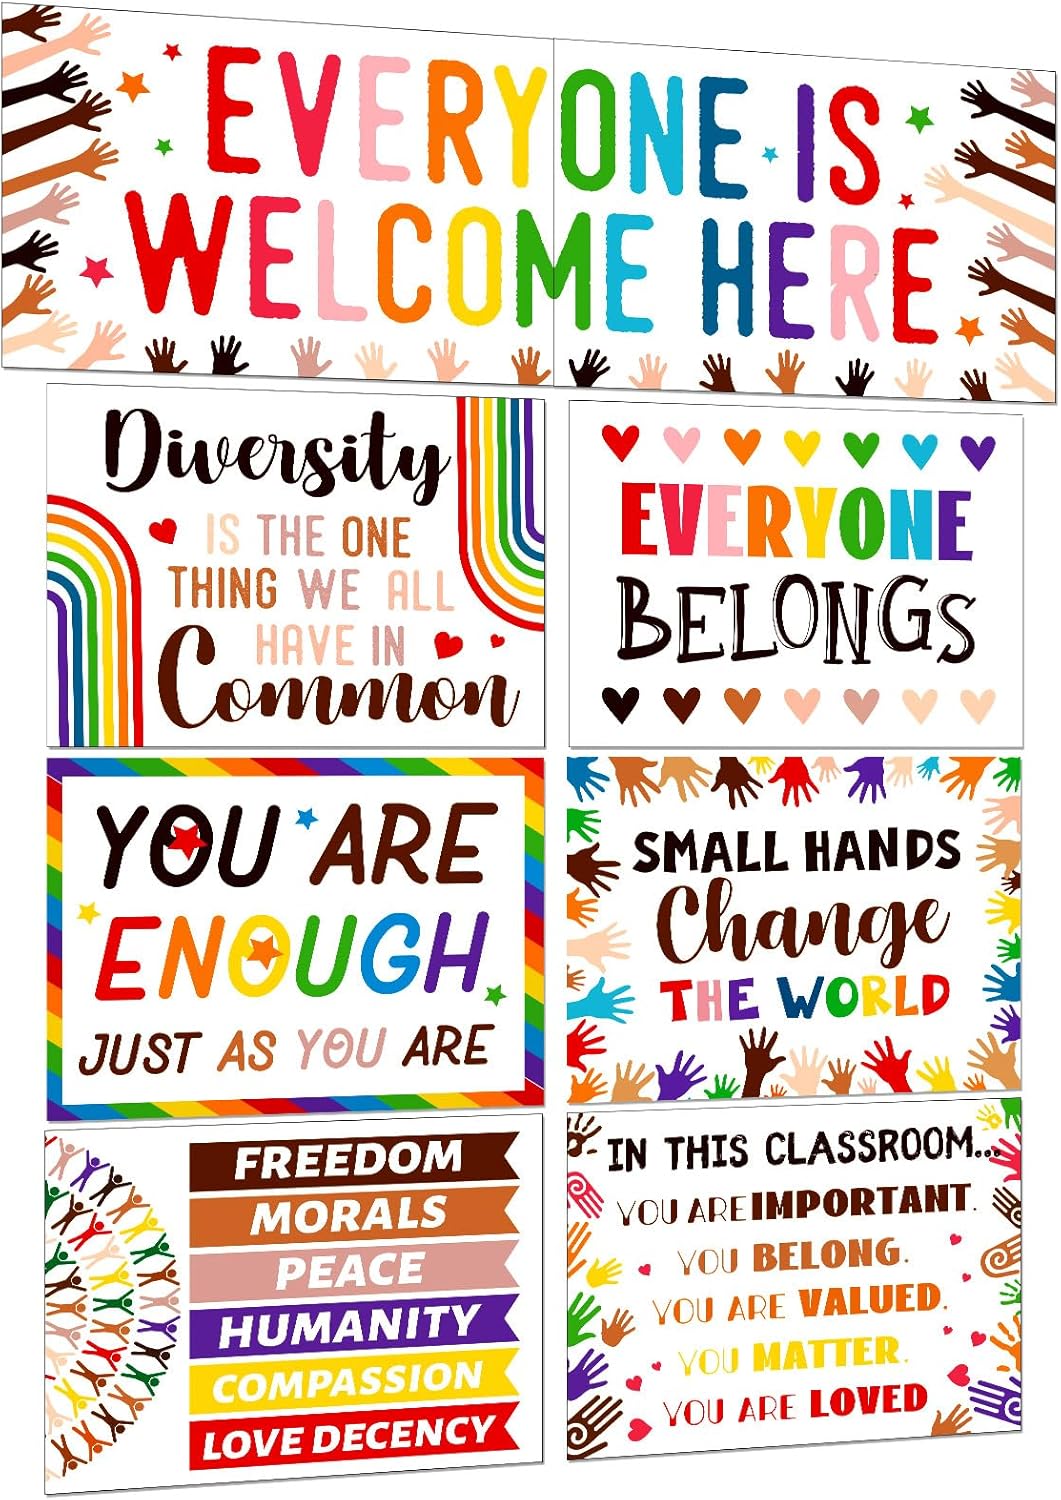 EVERYONE IS
WELCOME HERE
Diversity
IS THE ONE
THING WE ALL
HAVE IN
Common
EVERYONE
BELONGS
YOU ARE
ENOUGH
JUST AS YOU ARE
SMALL HANDS
Change
THE WORLD
FREEDOM
MORALS
PEACE
HUMANITY
COMPASSION
LOVE DECENCY
IN THIS CLASSROOM...
YOU ARE IMPORTANT.
YOU BELONG.
YOU ARE VALUED.
YOU MATTER.
YOU ARE LOVED